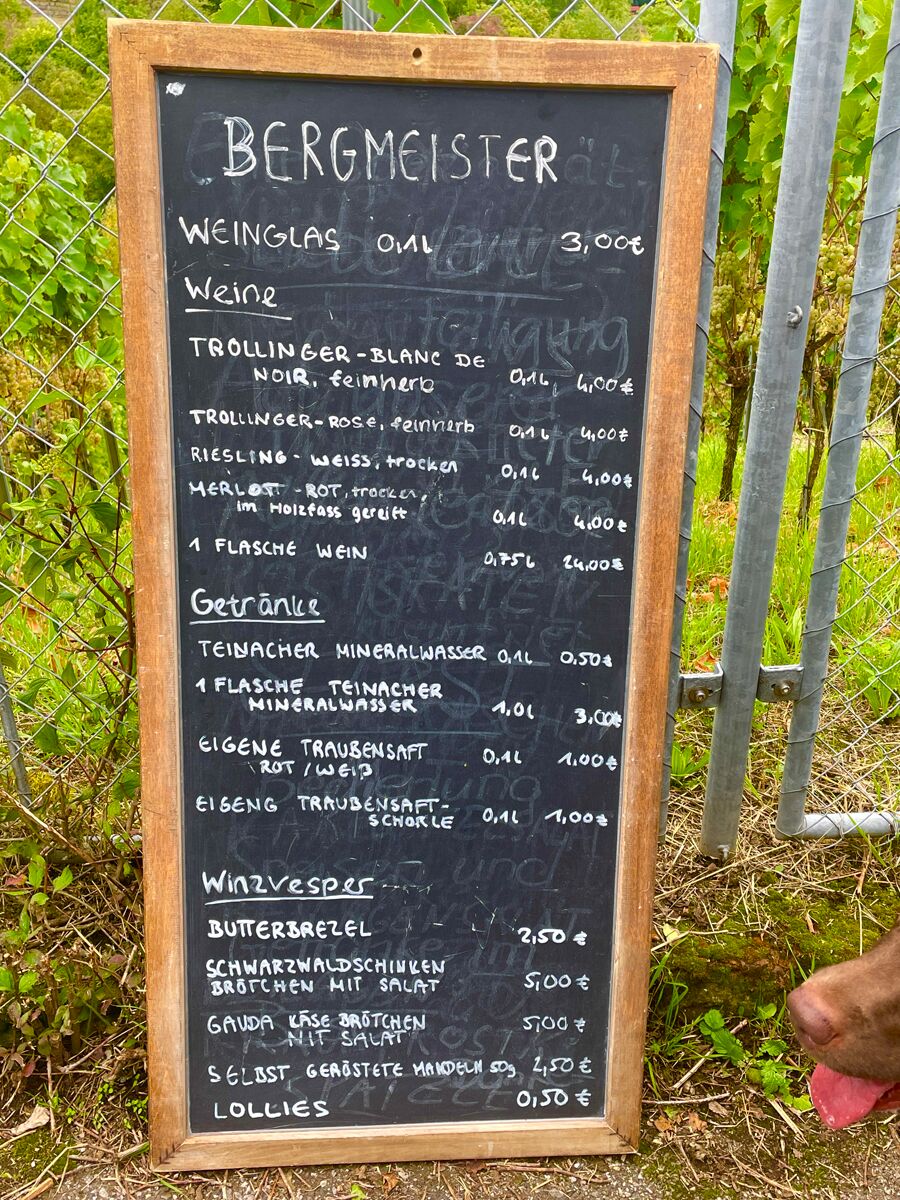 BERGMEISTER
WEINGLAS 0,1L 3,00€
Weine
TROLLINGER-BLANC DE
NOIR, feinherb 0,1L 4,00€
TROLLINGER-ROSE, feinherb 0,1L 4,00€
RIESLING - WEISS, trocken 0,1L 4,00€
MERLOT - ROT, trocken,
im Holzfass gereift 0,1L 4,00€
1 FLASCHE WEIN 0,75L 24,00€
Getränke
TEINACHER MINERALWASSER 0,1L 0,50€
1 FLASCHE TEINACHER
MINERALWASSER 1,0L 3,00€
EIGENE TRAUBENSAFT
ROT / WEIß 0,1L 1,00€
EIGENG TRAUBENSAFT-
SCHORLE 0,1L 1,00€
Winzvesper
BUTTERBREZEL 2,50 €
SCHWARZWALDSCHINKEN
BRÖTCHEN MIT SALAT 5,00€
GAUDA KÄSE BRÖTCHEN
MIT SALAT 5,00€
SELBST GERÖSTETE MANDELN 50g 2,50€
LOLLIES 0,50€